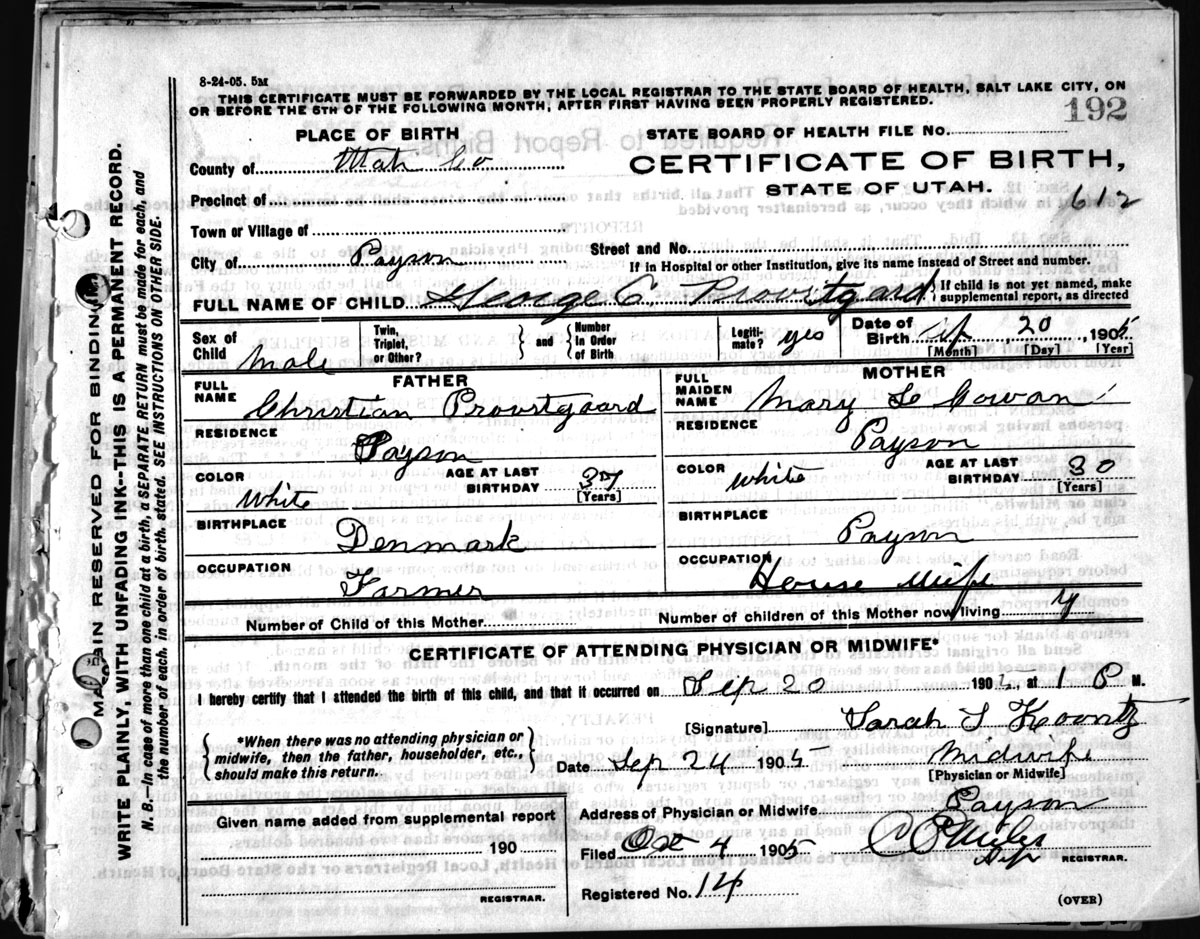 8-24-05. 5M
THIS CERTIFICATE MUST BE FORWARDED BY THE LOCAL REGISTRAR TO THE STATE BOARD OF HEALTH, SALT LAKE CITY, ON
OR BEFORE THE 5TH OF THE FOLLOWING MONTH, AFTER FIRST HAVING BEEN PROPERLY REGISTERED.
192
PLACE OF BIRTH
STATE BOARD OF HEALTH FILE NO.
County of Utah Co
CERTIFICATE OF BIRTH,
STATE OF UTAH.
Precinct of
612
Town or Village of
Street and No.
City of Payson
If in Hospital or other Institution, give its name instead of Street and number.
FULL NAME OF CHILD George C. Provstgard { If child is not yet named, make supplemental report, as directed
Sex of Child Male
Twin, Triplet, or Other? } and { Number in Order of Birth
Legitimate? yes
Date of Birth Sep. 20, 1905
[Month] [Day] [Year]
FATHER
FULL NAME Christian Provstgaard
RESIDENCE Payson
COLOR White
AGE AT LAST BIRTHDAY 37 [Years]
BIRTHPLACE Denmark
OCCUPATION Farmer
MOTHER
FULL MAIDEN NAME Mary L Cowan
RESIDENCE Payson
COLOR White
AGE AT LAST BIRTHDAY 30 [Years]
BIRTHPLACE Payson
OCCUPATION House Wife
Number of Child of this Mother
Number of children of this Mother now living
CERTIFICATE OF ATTENDING PHYSICIAN OR MIDWIFE*
I hereby certify that I attended the birth of this child, and that it occurred on Sep 20 190 , at 1 P M.
[Signature] Sarah S Koontz
{ *When there was no attending physician or midwife, then the father, householder, etc., should make this return. }
Date Sep 24 1905
Midwife
[Physician or Midwife]
Given name added from supplemental report
190
REGISTRAR.
Address of Physician or Midwife Payson
Filed Oct 4 1905
Dep REGISTRAR.
Registered No. 14
(OVER)
MARGIN RESERVED FOR BINDING
WRITE PLAINLY, WITH UNFADING INK--THIS IS A PERMANENT RECORD.
N. B.—In case of more than one child at a birth, a SEPARATE RETURN must be made for each, and
the number of each, in order of birth, stated. SEE INSTRUCTIONS ON OTHER SIDE.